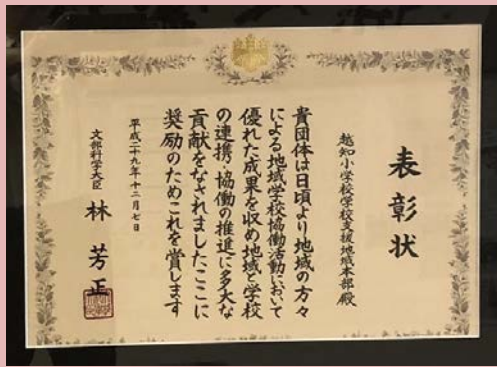 表彰状
越知小学校学校支援地域本部殿
貴団体は日頃より地域の方々
による地域学校協働活動において
優れた成果を収め地域と学校
の連携・協働の推進に多大な
貢献をなされましたここに
奨励のためこれを賞します
平成二十九年十二月七日
文部科学大臣 林芳正